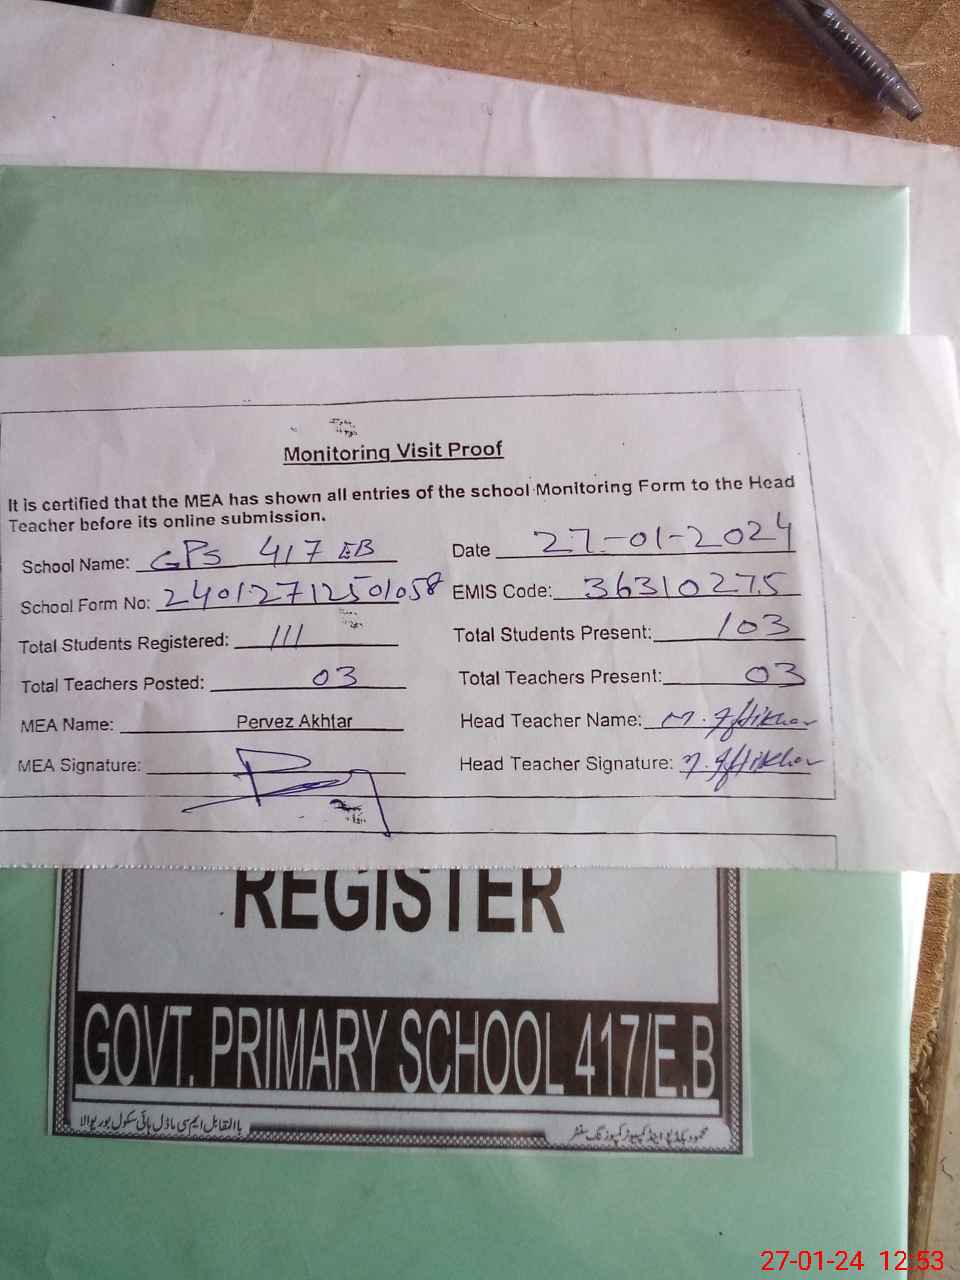 Monitoring Visit Proof
It is certified that the MEA has shown all entries of the school Monitoring Form to the Head
Teacher before its online submission.
School Name: GPS 417 EB Date 27-01-2024
School Form No: 24012712501058 EMIS Code: 36310275
Total Students Registered: 111 Total Students Present: 103
Total Teachers Posted: 03 Total Teachers Present: 03
MEA Name: Pervez Akhtar Head Teacher Name: M. Iftikhar
MEA Signature: Head Teacher Signature: M. Iftikhar
REGISTER
GOVT. PRIMARY SCHOOL 417/E.B
محمود بکڈپو اینڈ کمپیوٹر کمپوزنگ سنٹر بالمقابل ایم سی ماڈل ہائی سکول بوریوالا
27-01-24 12:53